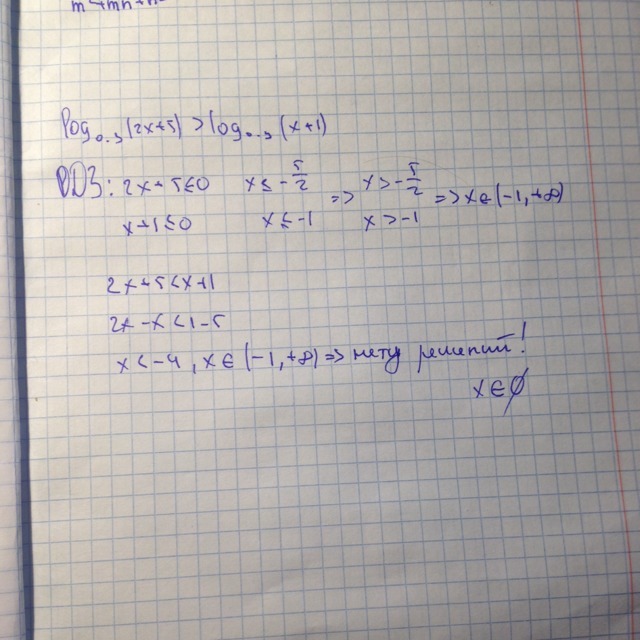 m² + mn + n²
log₀.₃(2x+5) > log₀.₃(x+1)
ОДЗ: 2x+5≤0 x≤-5/2 => x>-5/2 => x∈(-1,+∞)
x+1≤0 x≤-1 x>-1
2x+5<x+1
2x-x<1-5
x<-4, x∈(-1,+∞) => нету решений!
x∈∅